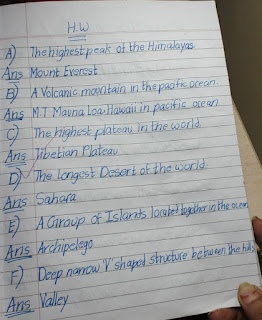 H.W
A) The highest peak of the Himalayas
Ans Mount Everest
B) A Volcanic mountain in the pacific ocean
Ans M.T Mauna Loa Hawaii in pacific ocean
C) The highest plateau in the world
Ans Tibetian Plateau
D) The longest Desert of the world
Ans Sahara
E) A Group of Islands located together in the ocean
Ans Archipelego
F) Deep narrow 'V' shaped structure between the hills
Ans Valley